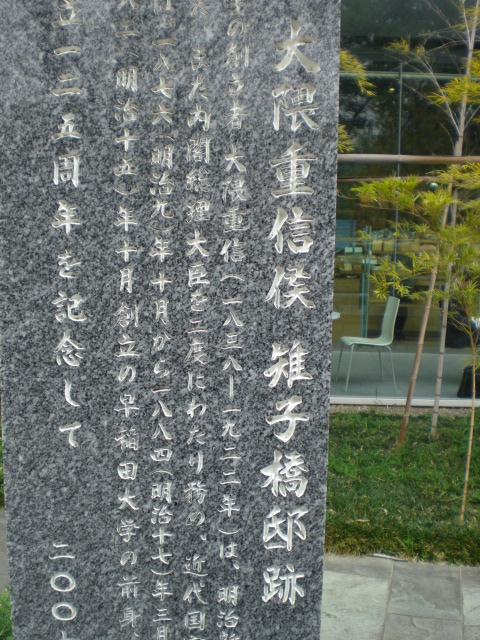 大隈重信侯 雉子橋邸跡
の創立者 大隈重信(一八三八―一九二二年)は、明治
また内閣総理大臣を二度にわたり務め、近代国
一八七六(明治九)年十月から一八八四(明治十七)年三月
(明治十五)年十月創立の早稲田大学の前身、
立一二五周年を記念して 二〇〇七